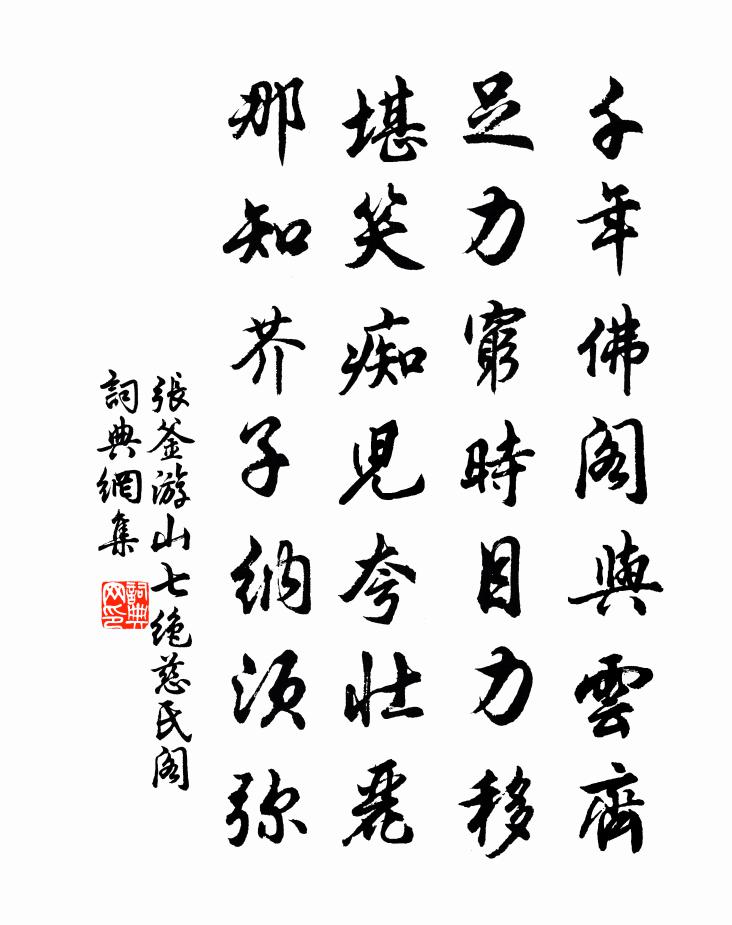 千年佛阁與雲齊
足力窮時目力移
堪笑痴児夸壮麗
那知芥子納须弥
張釜游山七绝慈氏阁
詞典網集
詞典网印